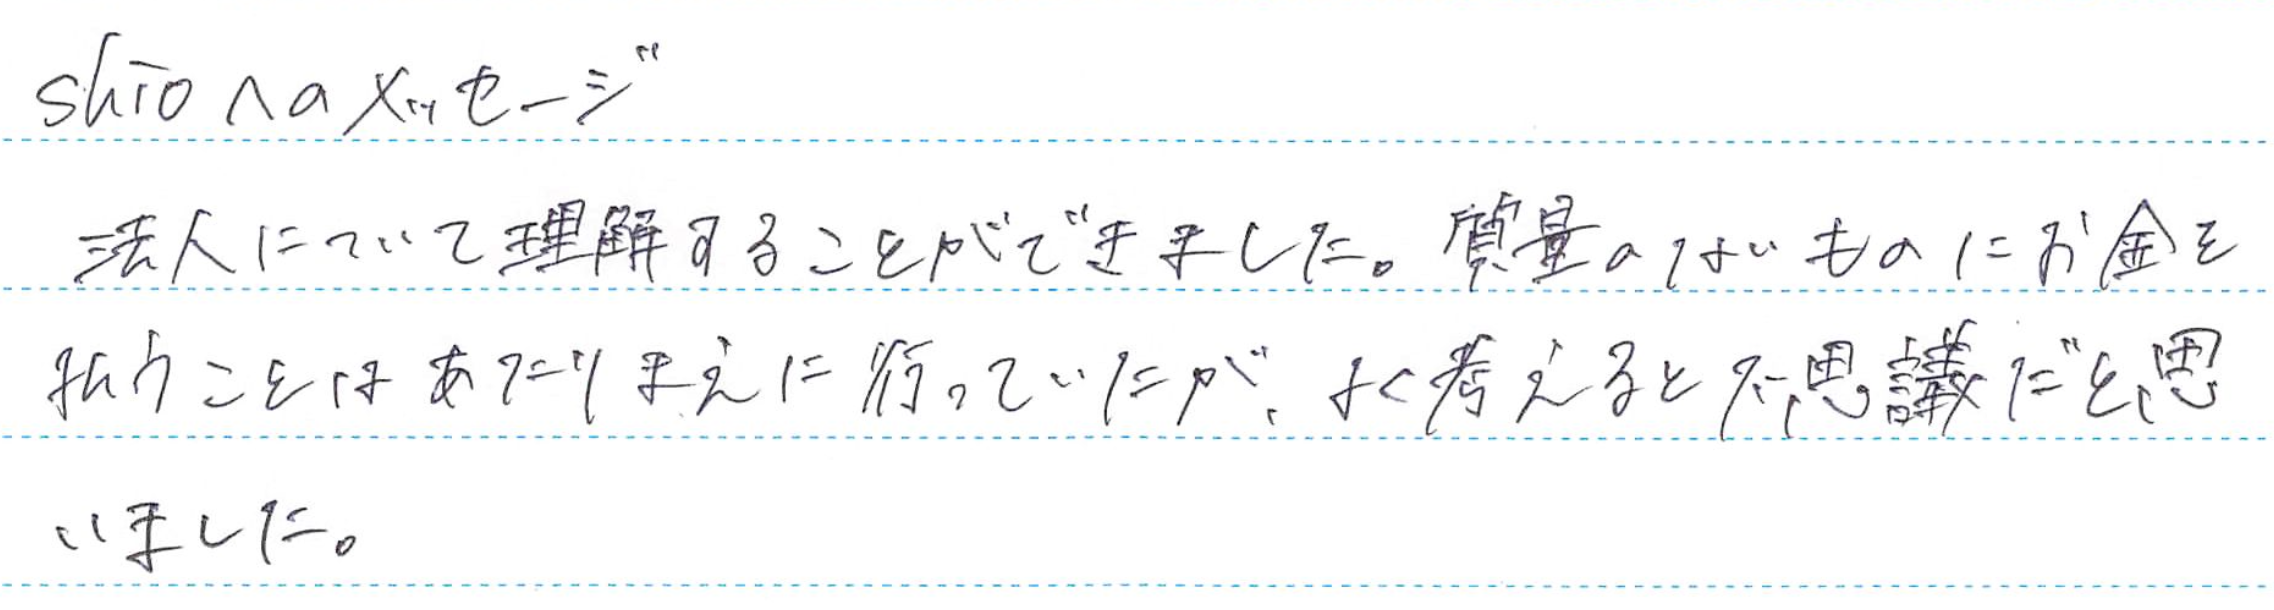 shioへのメッセージ
法人について理解することができました。質量のないものにお金を
払うことはあたりまえに行っていたが、よく考えると不思議だと思
いました。